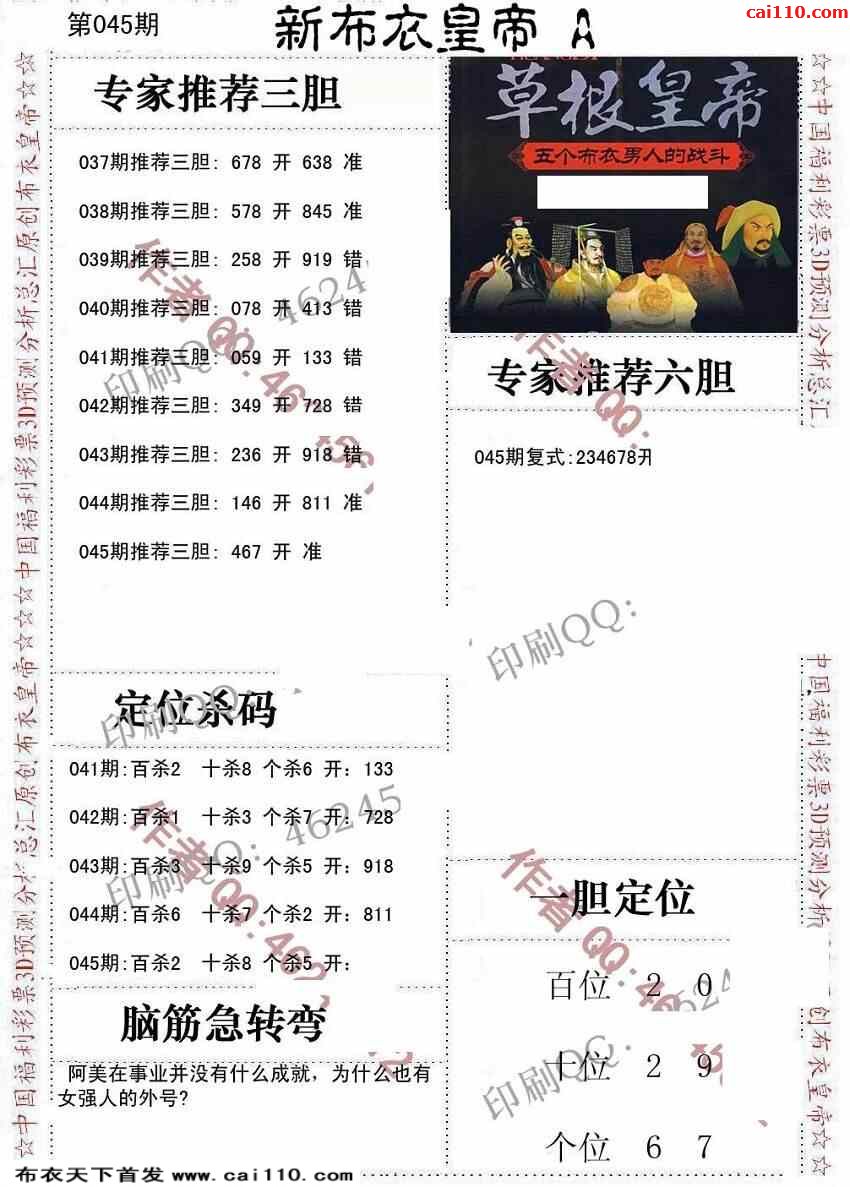 cai110.com
第045期
新布衣皇帝 A
专家推荐三胆
037期推荐三胆: 678 开 638 准
038期推荐三胆: 578 开 845 准
039期推荐三胆: 258 开 919 错
040期推荐三胆: 078 开 413 错
041期推荐三胆: 059 开 133 错
042期推荐三胆: 349 开 728 错
043期推荐三胆: 236 开 918 错
044期推荐三胆: 146 开 811 准
045期推荐三胆: 467 开 准
草根皇帝
五个布衣男人的战斗
专家推荐六胆
045期复式:234678开
定位杀码
041期:百杀2 十杀8 个杀6 开: 133
042期:百杀1 十杀3 个杀7 开: 728
043期:百杀3 十杀9 个杀5 开: 918
044期:百杀6 十杀7 个杀2 开: 811
045期:百杀2 十杀8 个杀5 开:
一胆定位
百位 2 0
十位 2 9
个位 6 7
脑筋急转弯
阿美在事业并没有什么成就，为什么也有
女强人的外号?
布衣天下首发 www.cai110.com
☆中国福利彩票3D预测分析总汇原创布衣皇帝☆☆☆中国福利彩票3D预测分析总汇原创布衣皇帝☆☆
☆☆中国福利彩票3D预测分析总汇
中国福利彩票3D预测分析
创布衣皇帝☆☆
作者QQ:46
印刷QQ: 4624
作者QQ:
印刷QQ:
印刷QQ: 46245
作者QQ:462
作者QQ:46
印刷QQ: 46245